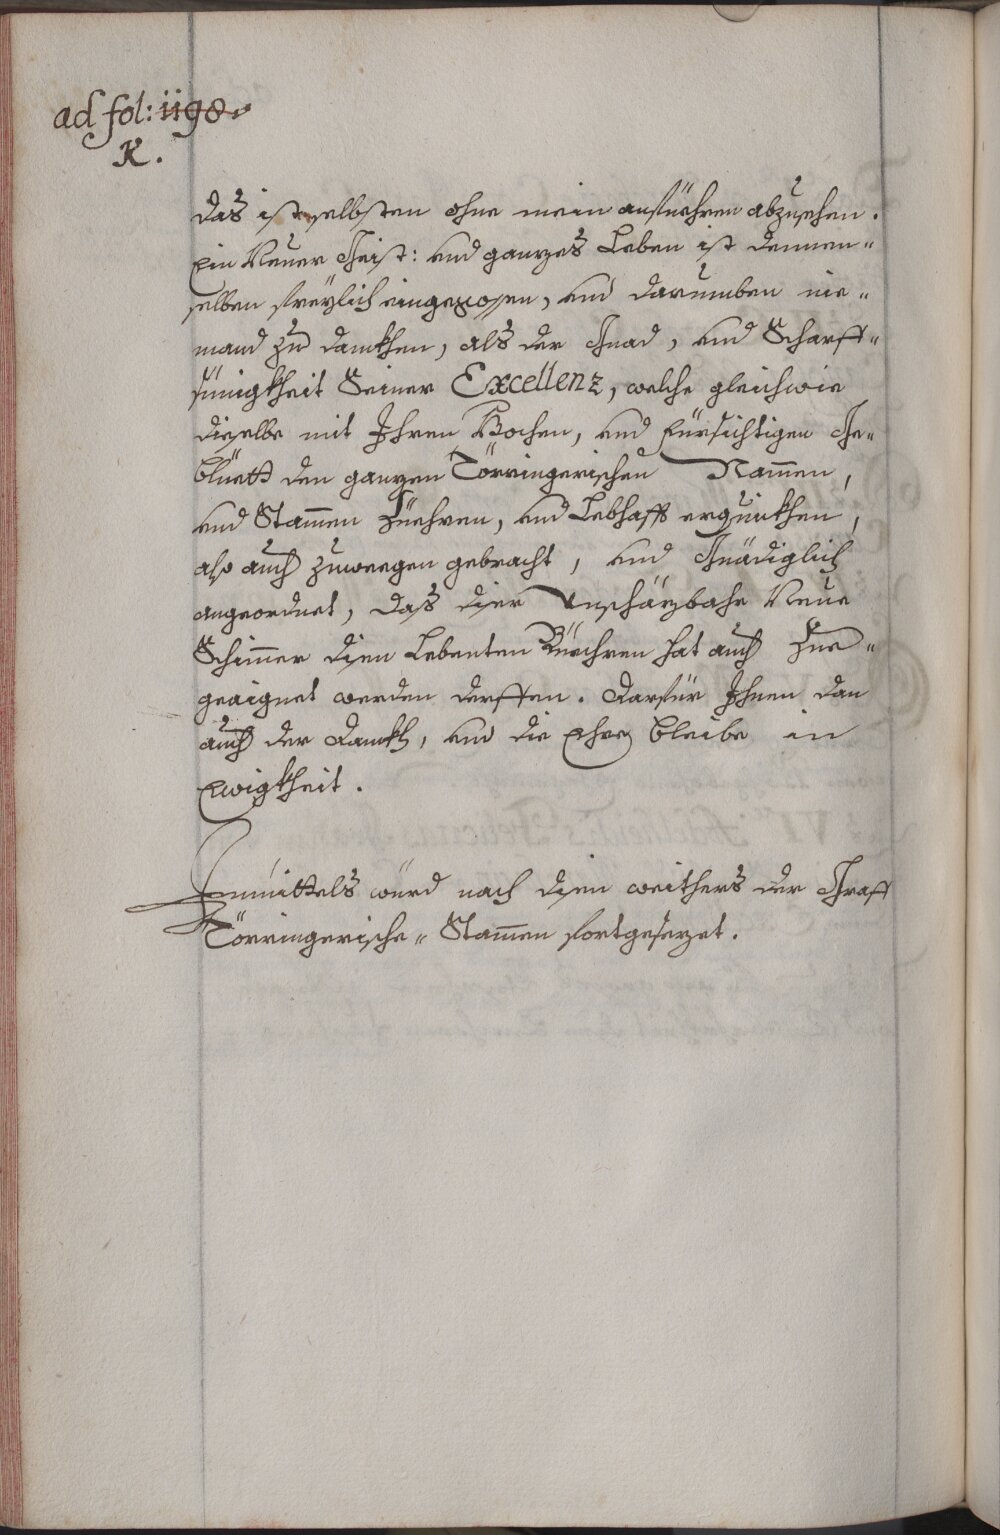 ad fol: 1198.
K.
das ist selbsten ohne mein anfüehren abzusehen.
Ein Neuer Geist: und ganzes Leben ist dennen-
selben freÿlich eingegossen, und darumben nie-
mand zu dankhen, als der Gnad, und Scharff-
sünigkheit Seiner Excellenz, welche gleichwie
dieselbe mit Ihren Hochen, und fürsichtigen Ge-
blüett den ganzen Törringerischen Nammen,
und Stammen Züehren, und Lebhafft erquikhen,
also auch zuweegen gebracht, und Gnädiglich
angeordnet, das diser Unschäzbahe Neue
Schimmer disen Lebenten hat auch Zue-
geaignet werden derffen. Darfür Ihnen dan
auch der Dankh, und die Ehre bleibe in
Ewigkheit.
Inmittels würd nach disen weithers der Graff
Törringerische- Stammen fortgesezet.